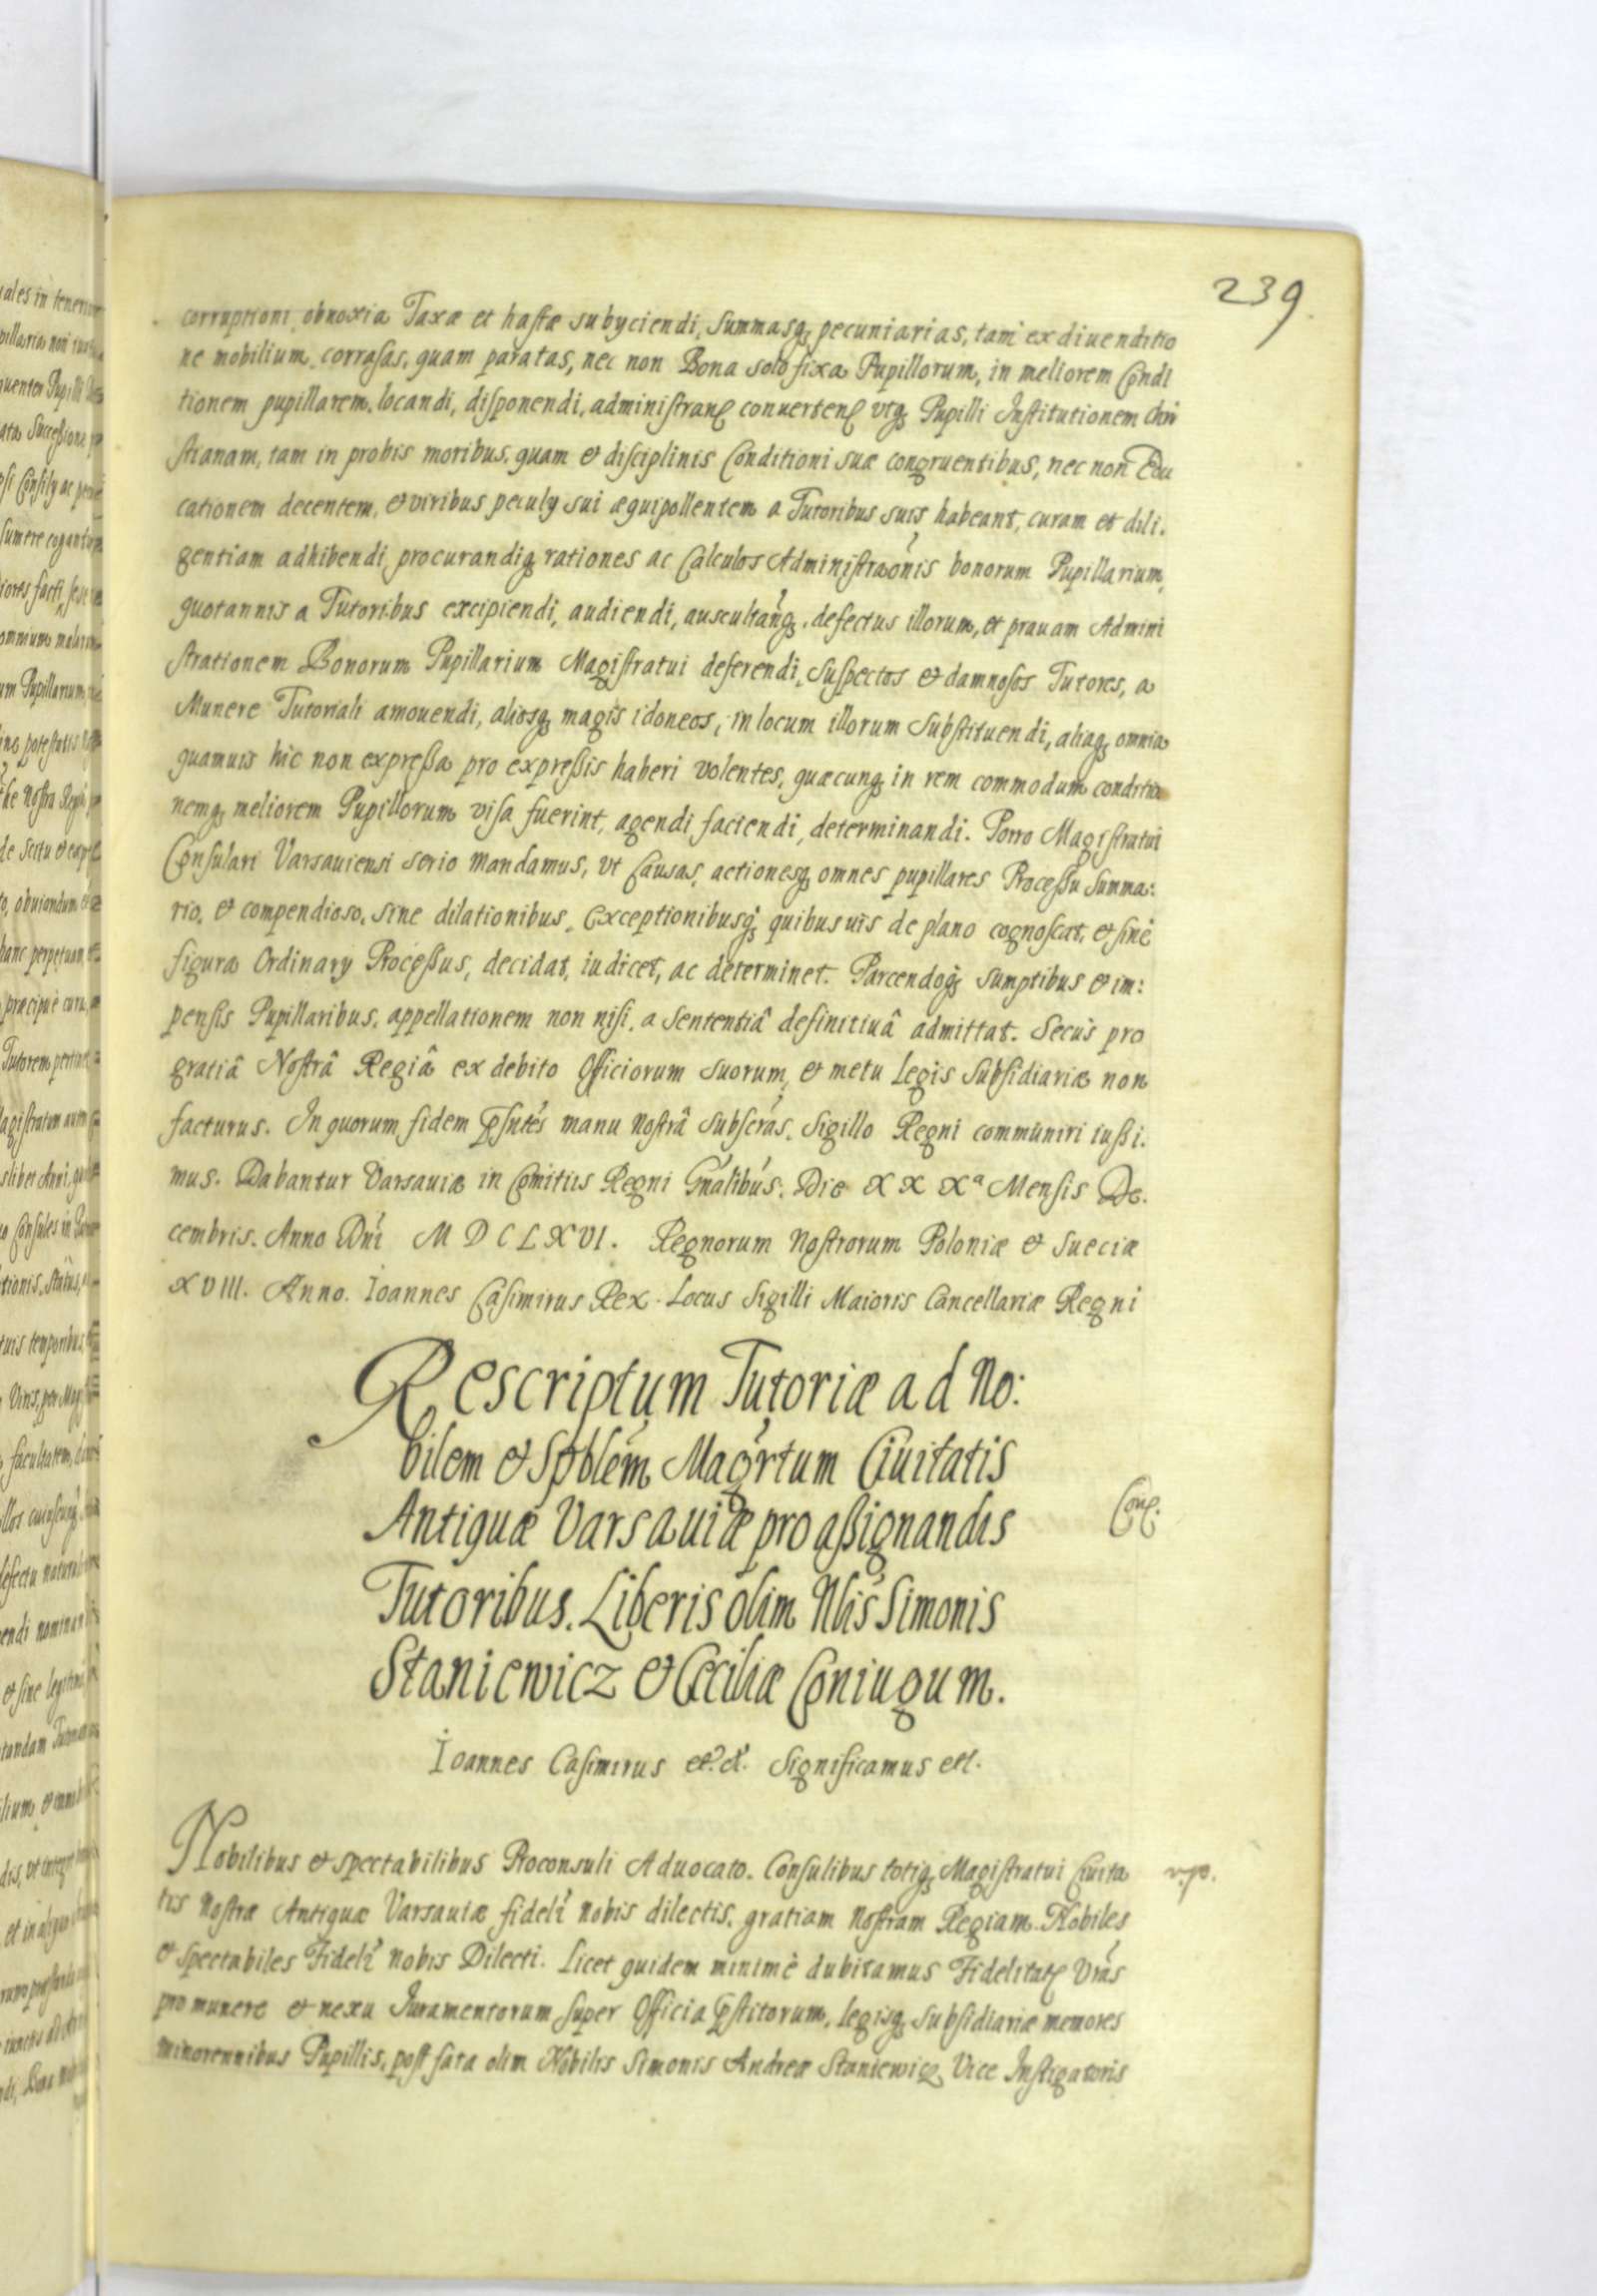 239.
corruptioni obnoxia Taxæ et hastæ subyciendi, Summasq, pecuniarias, tam ex diuenditio
ne mobilium corrasas, quam paratas, nec non Bona solo fixa Pupillorum, in meliorem Condi
tionem pupillarem locandi, disponendi, administran convertend vtq, Pupilli Institutionem Chri
stianam, tam in probis moribus quam et disciplinis Conditioni suæ congruentibus, nec non Edu
cationem decentem, et viribus peculy sui æquipollentem a Tutoribus suis habeant, curam et dili.
gentiam adhibendi procurandiq, rationes ac Calculos Administraonis bonorum Pupillarium,
quotannis a Tutoribus excipiendi, audiendi, auscultanq, defectus illorum, et prauam Admini
strationem Bonorum Pupillarium Magistratui deferendi, Suspectos et damnosos Tutores, a
Munere Tutoriali amouendi, aliosq, magis idoneos, in locum illorum Substituendi, aliaq, omnia
quamuis hic non expressa pro expressis haberi volentes, quæcunq, in rem commodum conditio
nemq, meliorem Pupillorum visa fuerint, agendi faciendi, determinandi. Porro Magistratui
Consulari Varsauiensi serio Mandamus, vt Causas, actionesq, omnes pupillares Processu Summa:
rio, et compendioso, sine dilationibus, Exceptionibusq, quibusuis de plano cognoscat, et sine
figura Ordinary Processus, decidat, iudicet, ac determinet. Parcendoq, sumptibus et im:
pensis Pupillaribus, appellationem non nisi, a Sententiâ definitiuâ admittat. Secus pro
gratiâ Nostrâ Regiâ ex debito Officiorum Suorum, et metu Legis Subsidiariæ non
facturus. In quorum fidem Psntes manu Nostrâ Subscras. Sigillo Regni communiri iussi.
mus. Dabantur Varsauiæ in Comitiis Regni Gnalibus. Die XXXa Mensis De.
cembris. Anno Dni MDCLXVI. Regnorum Nostrorum Poloniæ et Sueciæ
XVIII. Anno. Ioannes Casimirus Rex. Locus Sigilli Maioris Cancellariæ Regni
Rescriptum Tutoriæ ad No:
bilem et Spblem Magrtum Ciuitatis
Antiquæ Varsauiæ pro assignandis
Tutoribus. Liberis olim Nblis Simonis
Staniewicz et Cæciliæ Coniugum.
Ioannes Casimirus et. et. Significamus etc.
Nobilibus et spectabilibus Proconsuli Aduocato. Consulibus totiq, Magistratui Ciuita
tis Nostræ Antiquæ Varsauiæ fideli nobis dilectis, gratiam Nostram Regiam. Nobiles
et spectabiles Fideli nobis Dilecti. Licet quidem minimè dubitamus Fidelitat Vras
pro munere et nexu Iuramentorum super Officia Pstitorum, legisq, subsidiariæ memores
minorennibus Pupillis, post fata olim Nobilis Simonis Andreæ Staniewicz, Vice Instigatoris